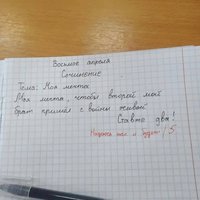 Восьмое апреля
Сочинение
Тема: Моя мечта
Моя мечта, чтобы второй мой
брат пришёл с войны живой
Ставте два!
Надеюсь так и будет 15